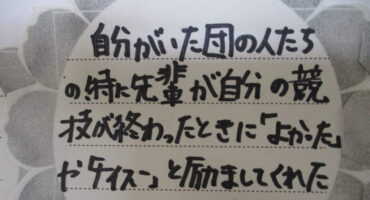 自分がいた団の人たち
の特に先輩が自分の競
技が終わったときに「よかった」
や「ナイスー」と励ましてくれた